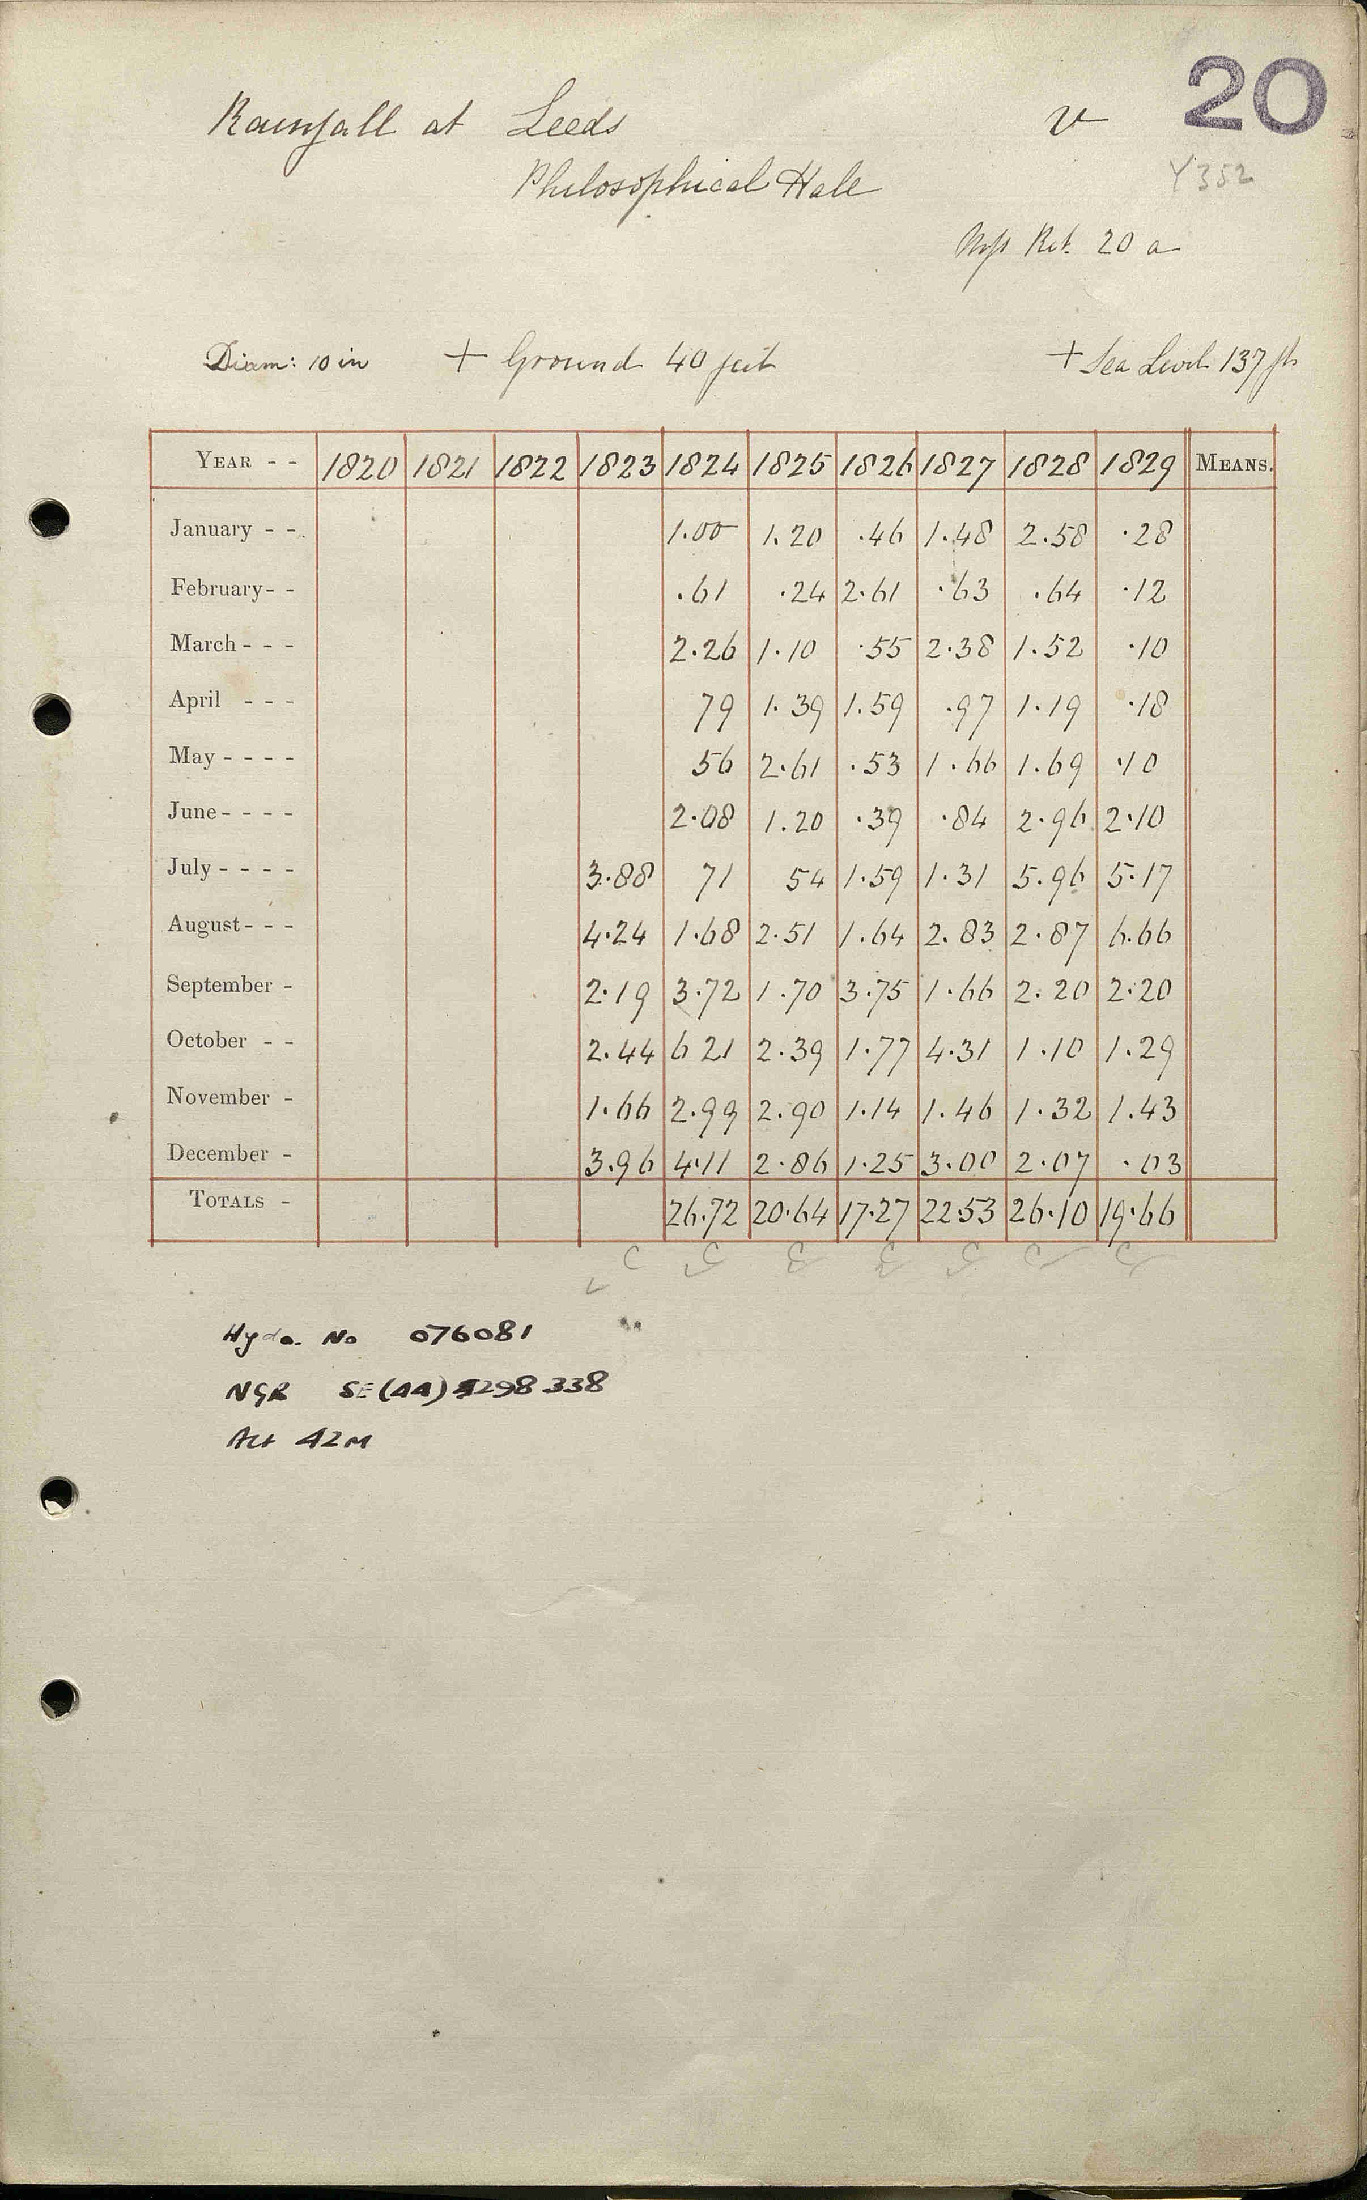 20
Rainfall at Leeds v
Y352
Philosophical Hall
Ref. 20 a
Diam: 10 in + Ground 40 feet + Sea Level 137 ft
YEAR - - 1820 1821 1822 1823 1824 1825 1826 1827 1828 1829 MEANS.
January - - 1.00 1.20 .46 1.48 2.58 .28
February - - .61 .24 2.61 .63 .64 .12
March - - - 2.26 1.10 .55 2.38 1.52 .10
April - - - 79 1.39 1.59 .97 1.19 .18
May - - - - 56 2.61 .53 1.66 1.69 .10
June - - - - 2.08 1.20 .39 .84 2.96 2.10
July - - - - 3.88 71 54 1.59 1.31 5.96 5.17
August - - - 4.24 1.68 2.51 1.64 2.83 2.87 6.66
September - 2.19 3.72 1.70 3.75 1.66 2.20 2.20
October - - 2.44 6 21 2.39 1.77 4.31 1.10 1.29
November - 1.66 2.99 2.90 1.14 1.46 1.32 1.43
December - 3.96 4.11 2.86 1.25 3.00 2.07 .03
TOTALS - 26.72 20.64 17.27 22.53 26.10 19.66
C C C C C C C
Hydo. No 076081
NGR SE(44) 298 338
Alt 42M